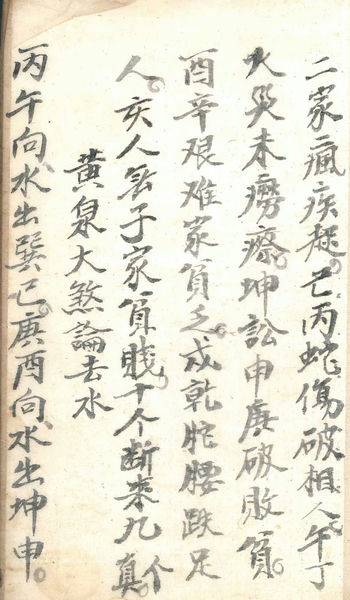 二家瘋疾起。巳丙蛇傷破相人。午丁
火災未癆瘵。坤訟申庚破敗貧。
酉辛艰难家貧乏。戌乾駝腰跌足
人。亥人無子家貧賎。十个断來九个
真。
黃泉大煞論去水
丙午向水出巽巳。庚酉向水出坤申。